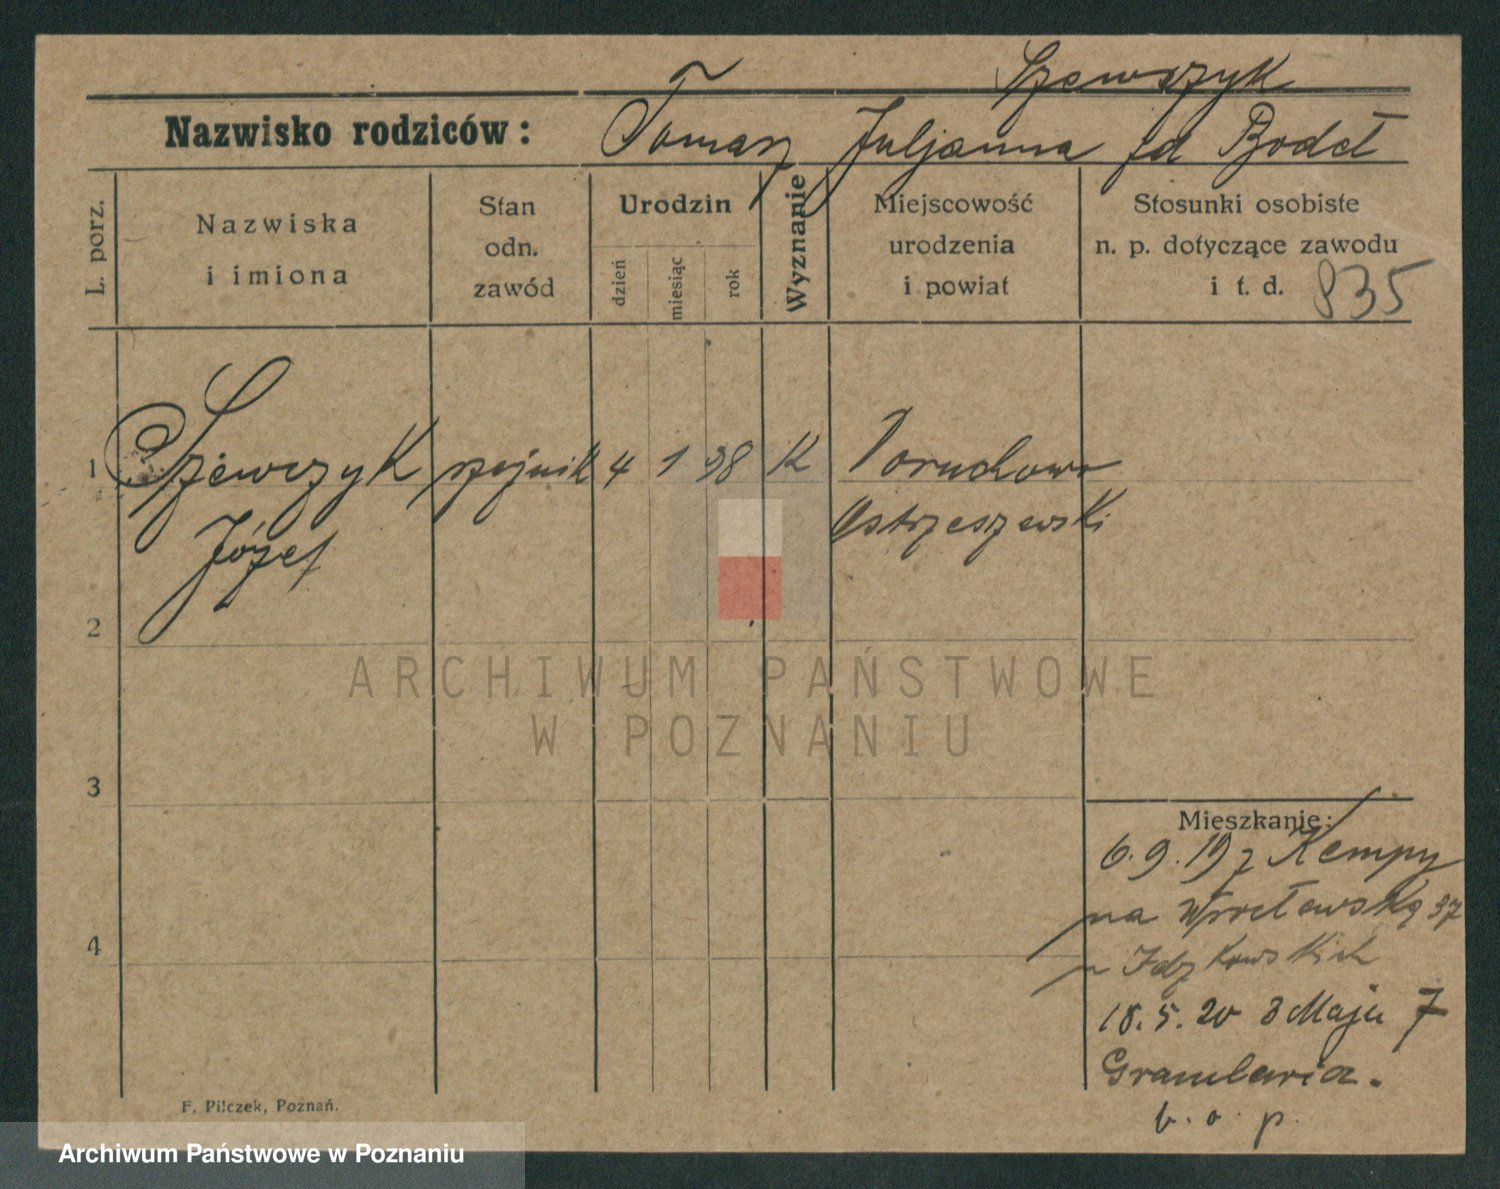 Szewczyk
Nazwisko rodziców: Tomasz Juljanna fd Bodeł
L. porz.
Nazwiska i imiona
Stan odn. zawód
Urodzin
dzień miesiąc rok
Wyznanie
Miejscowość urodzenia i powiat
Stosunki osobiste n. p. dotyczące zawodu i t. d. 835
1 Szewczyk 4 1 98 K Doruchowo
Józef Ostrzeszewski
2
3
4
Mieszkanie:
6.9.19 z Kempy
na Wrocławską 37
u Idzkowskich
18.5.20 3 Maja 7
b. o. p.
F. Pilczek, Poznań.
ARCHIWUM PAŃSTWOWE
W POZNANIU
Archiwum Państwowe w Poznaniu